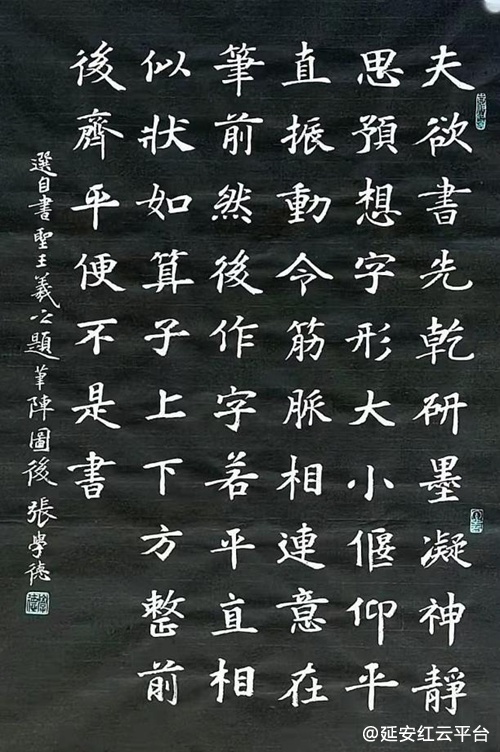 夫欲書先乾研墨凝神靜
思預想字形大小偃仰平
直振動令筋脈相連意在
筆前然後作字若平直相
似狀如算子上下方整前
後齊平便不是書
選自書聖王羲之題筆陣圖後張學德
@延安红云平台